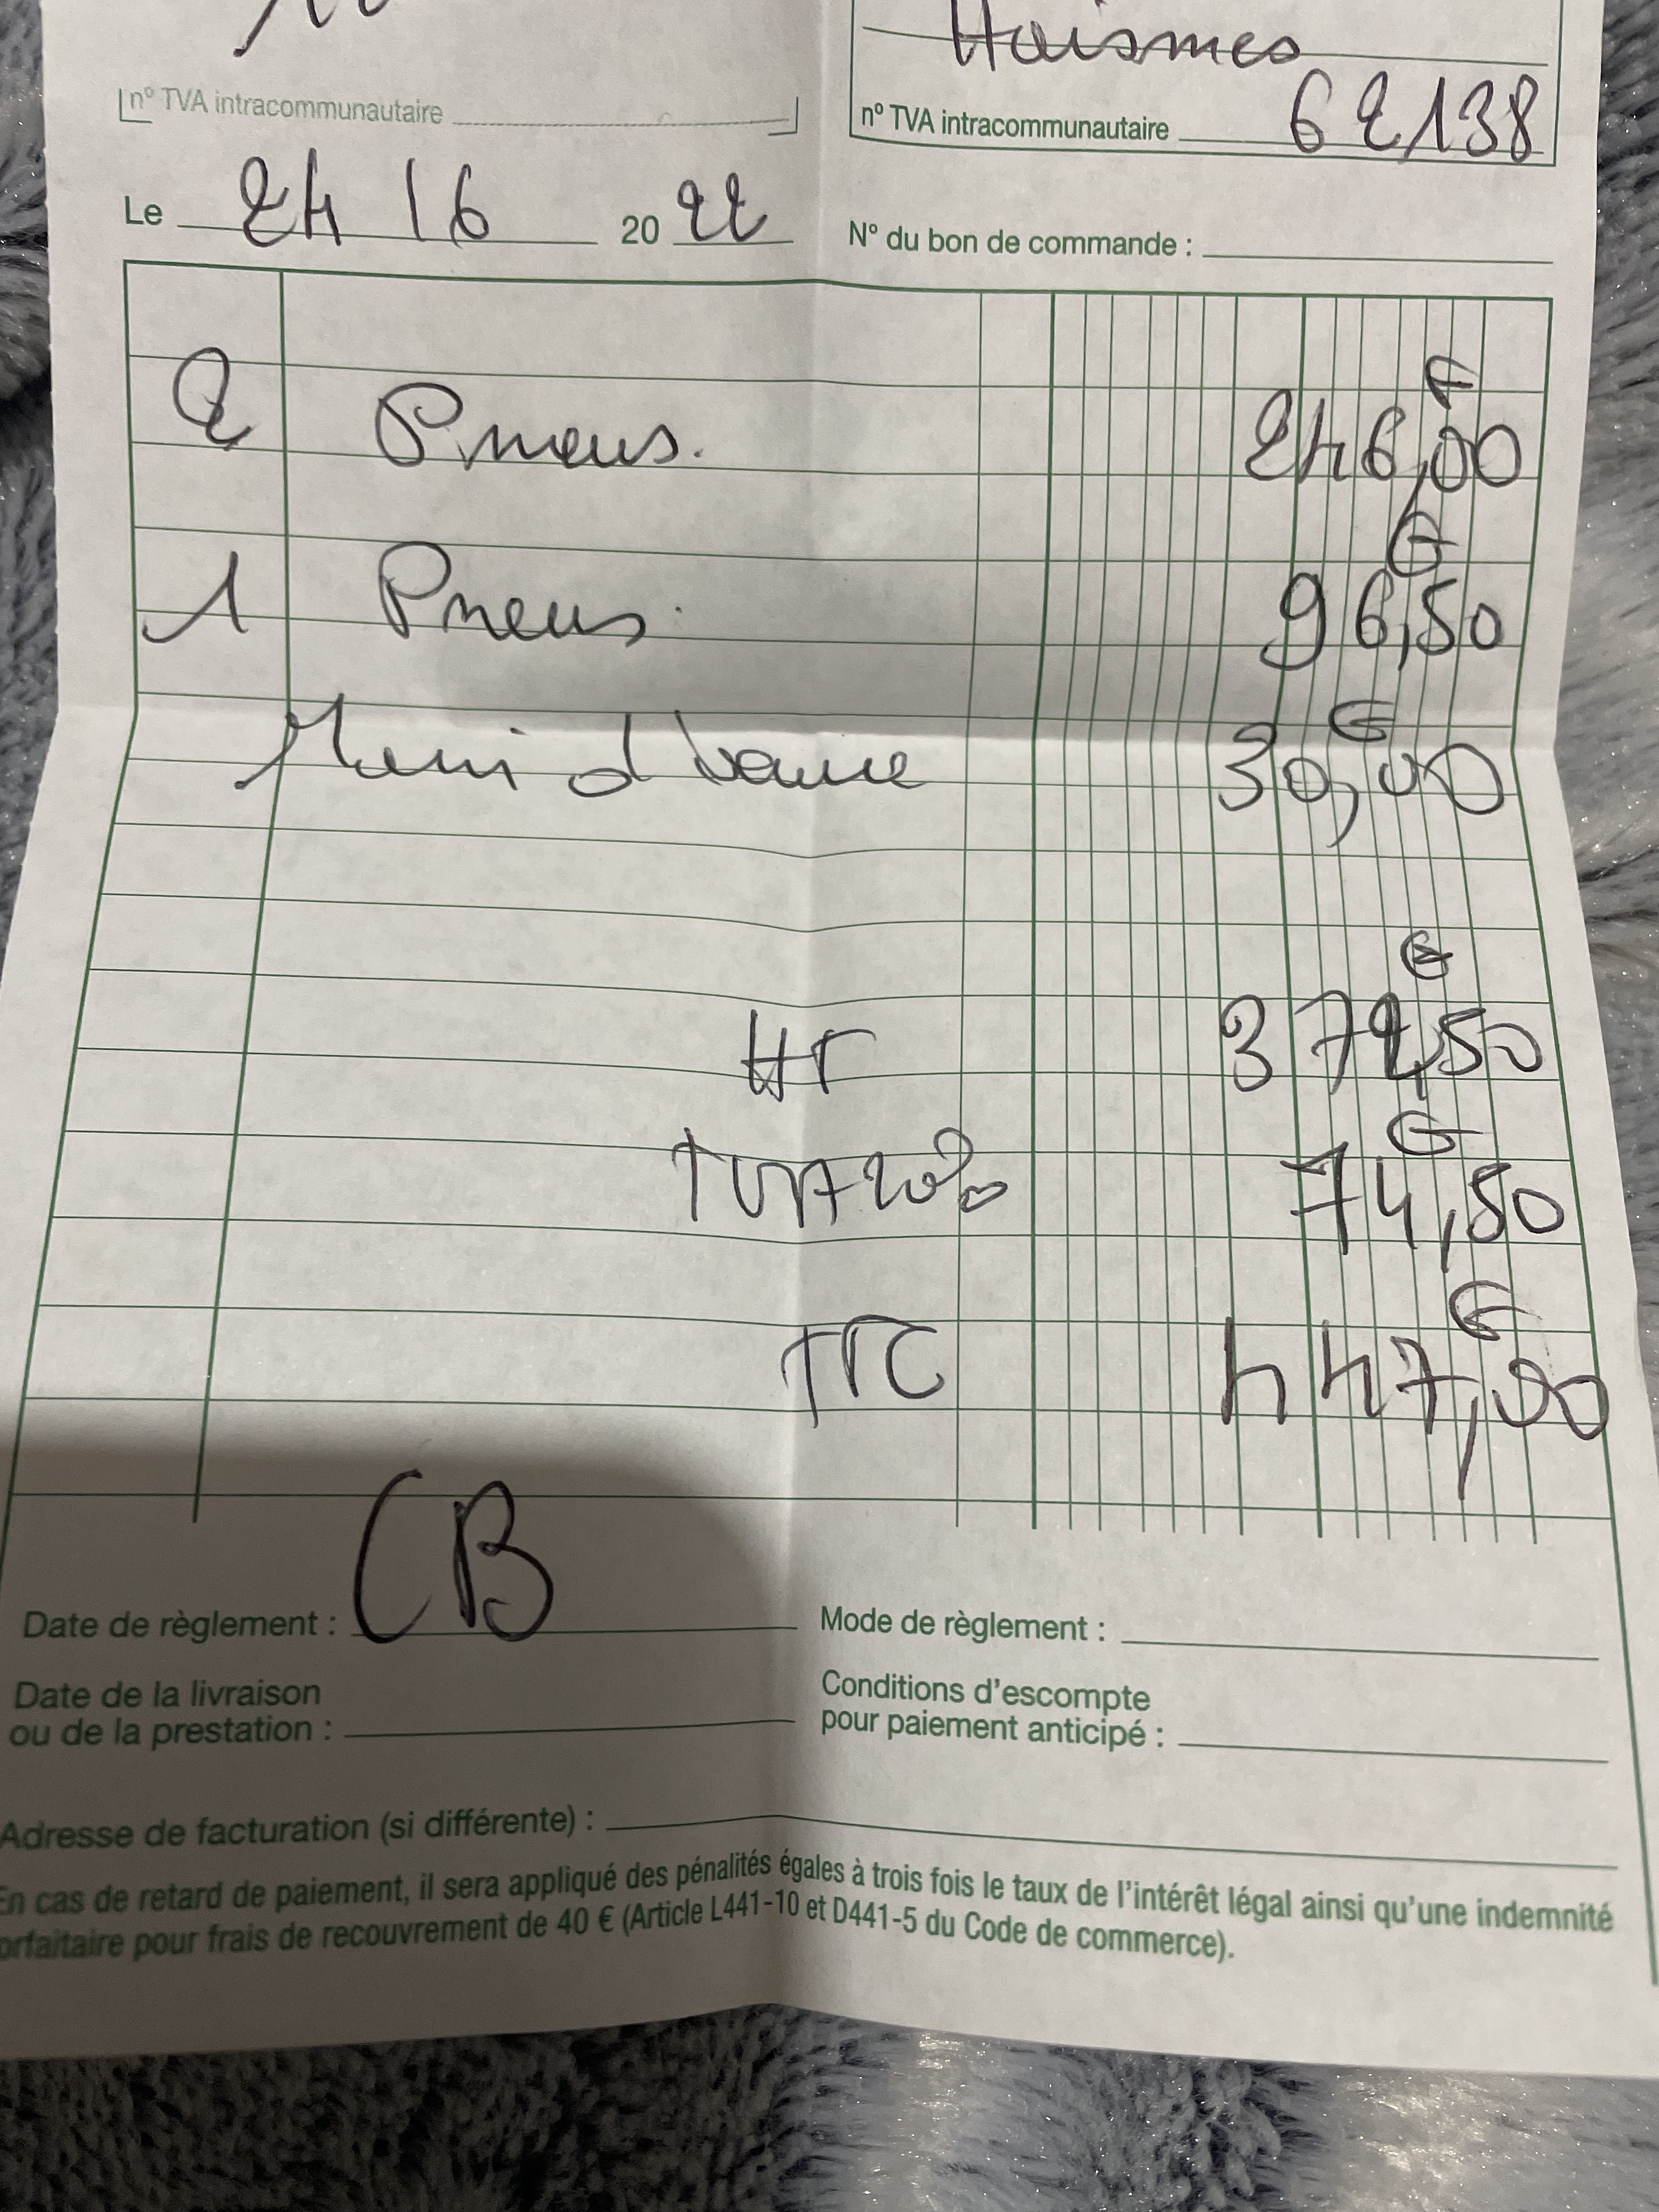 Haismes
n° TVA intracommunautaire
n° TVA intracommunautaire 62138
Le 24/6 2022
N° du bon de commande :
2 Pneus. 246,00 €
1 Pneus. 96,50 €
Main d 30,00 €
HT 372,50 €
TVA 20% 74,50 €
TTC 447,00 €
CB
Date de règlement :
Mode de règlement :
Date de la livraison
ou de la prestation :
Conditions d'escompte
pour paiement anticipé :
Adresse de facturation (si différente) :
En cas de retard de paiement, il sera appliqué des pénalités égales à trois fois le taux de l'intérêt légal ainsi qu'une indemnité
forfaitaire pour frais de recouvrement de 40 € (Article L441-10 et D441-5 du Code de commerce).